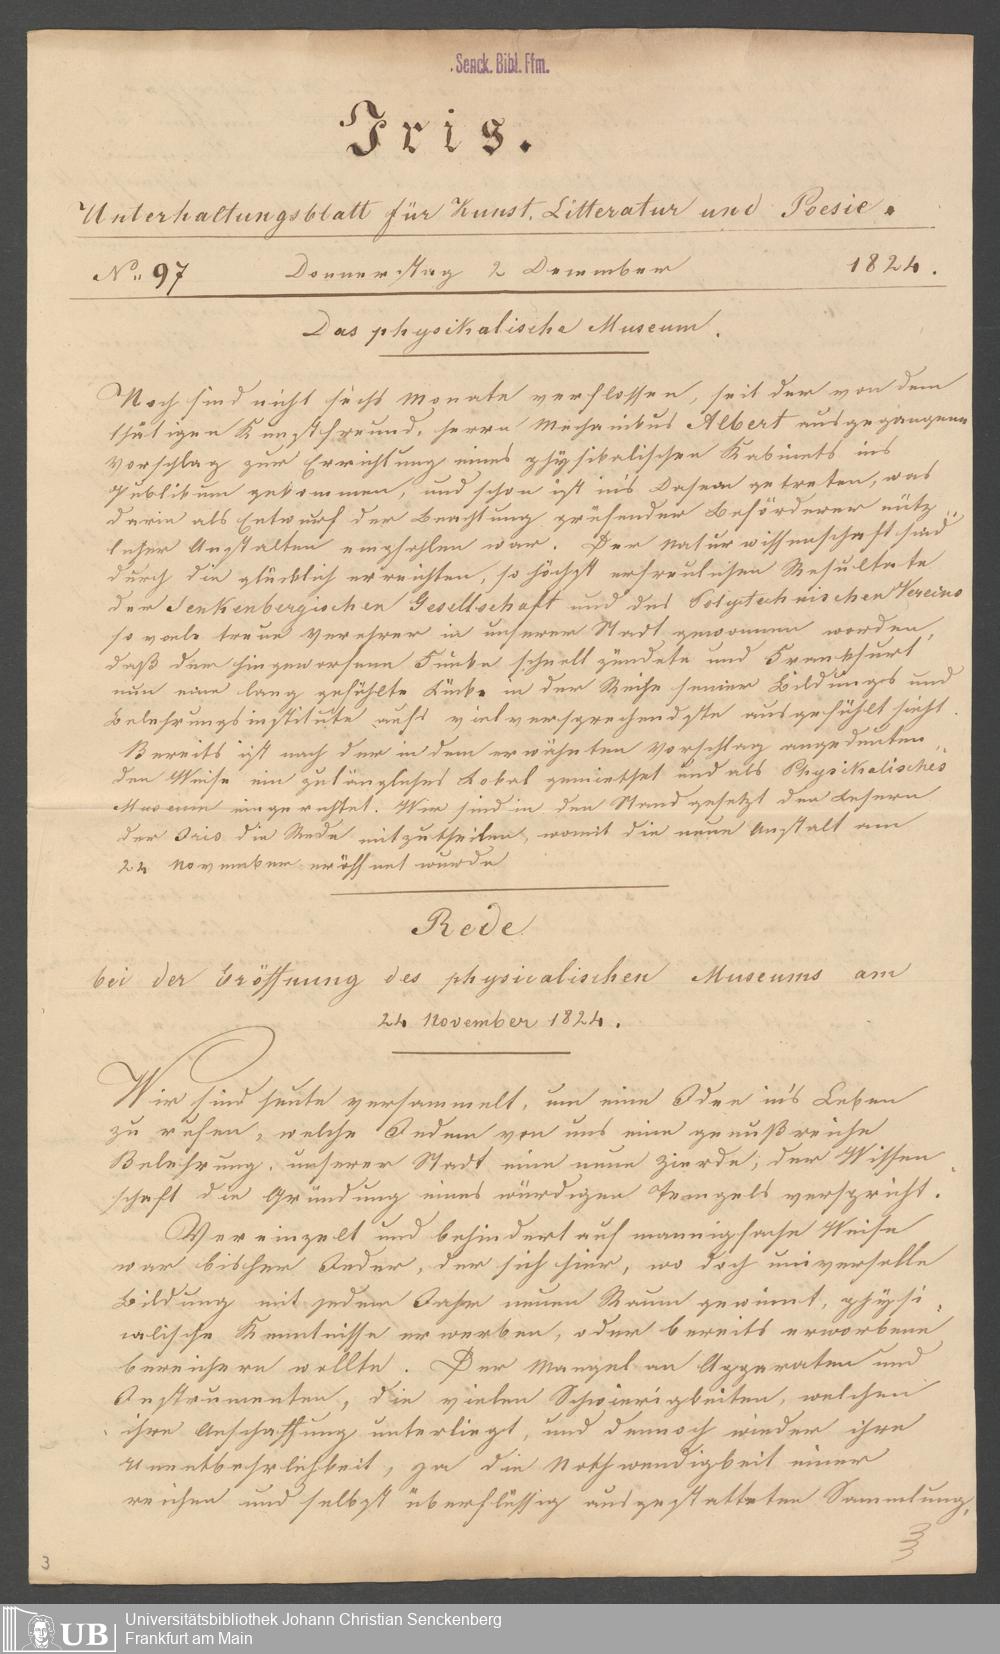 Senck. Bibl. Ffm.
Iris.
Unterhaltungsblatt für Kunst, Litteratur und Poesie.
No. 97 Donnerstag 2 Dezember 1824.
Das physikalische Museum.
Noch sind nicht sechs Monate verflossen, seit der von dem
thätigen Kunstfreund, Herrn Mechanikus Albert ausgegangene
Vorschlag zur Errichtung eines physikalischen Kabinets ins
Publikum gekommen, und schon ist in's Dasein getreten, was
darin als Entwurf der Beachtung prüfender Beförderer nütz-
licher Anstalten empfohlen war. Der Naturwissenschaft sind
durch die glücklich erreichten, so höchst erfreulichen Resultate
der Senkenbergischen Gesellschaft und des Polytechnischen Vereins
so viele treue Verehrer in unserer Stadt gewonnen worden,
daß der hingeworfene Funke schnell zündete und Frankfurt
nun eine lang gefühlte Lücke in der Reihe seiner Bildungs und
Belehrungsinstitute aufs vielversprechendste ausgefühlt sieht.
Bereits ist nach der in dem erwähnten Vorschlag angedeuten-
den Weise ein zulängliches Lokal gemiethet und als Physikalisches
Museum eingerichtet. Wir sind in den Stand gesetzt den Lesern
der Iris die Rede mitzutheilen, womit die neue Anstalt am
24 November eröffnet wurde
Rede
bei der Eröffnung des physicalischen Museums am
24 November 1824.
Wir sind heute versammelt, um eine Idee in's Leben
zu rufen, welche Jedem von uns eine genußreiche
Belehrung, unserer Stadt eine neue Zierde, der Wissen-
schaft die Gründung eines würdigen Tempels verspricht.
Vereinzelt und behindert auf mannigfache Weise
war bisher Jeder, der sich hier, wo doch universelle
Bildung mit jedem Jahr neuen Raum gewinnt, physi-
calische Kenntnisse erwerben, oder bereits erworbene
bereichern wollte. Der Mangel an Apparaten und
Instrumenten, die vielen Schwierigkeiten, welchen
ihre Anschaffung unterliegt, und dennoch wieder ihre
Unentbehrlichkeit, ja die Nothwendigkeit einer
reichen und selbst überflüssig ausgestatteten Sammlung,
3
UB
Universitätsbibliothek Johann Christian Senckenberg
Frankfurt am Main